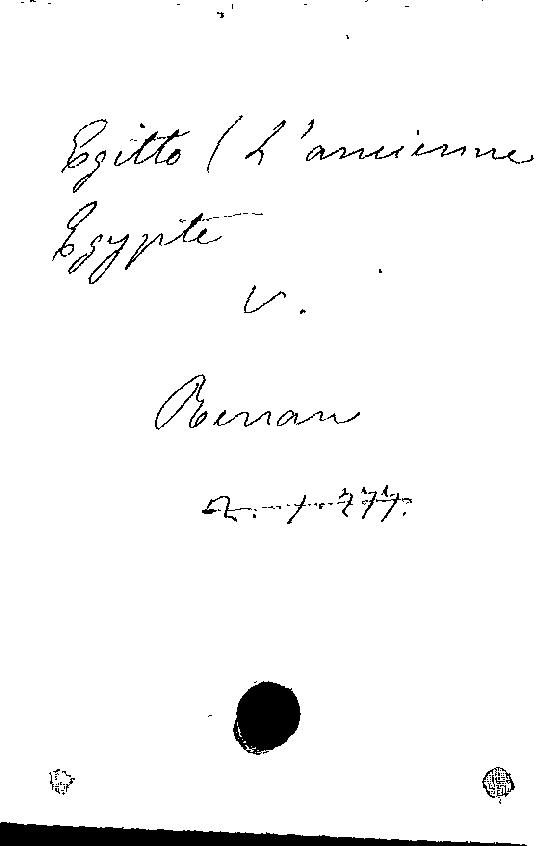 Egitto (L'ancienne
Egypte
V.
Renan